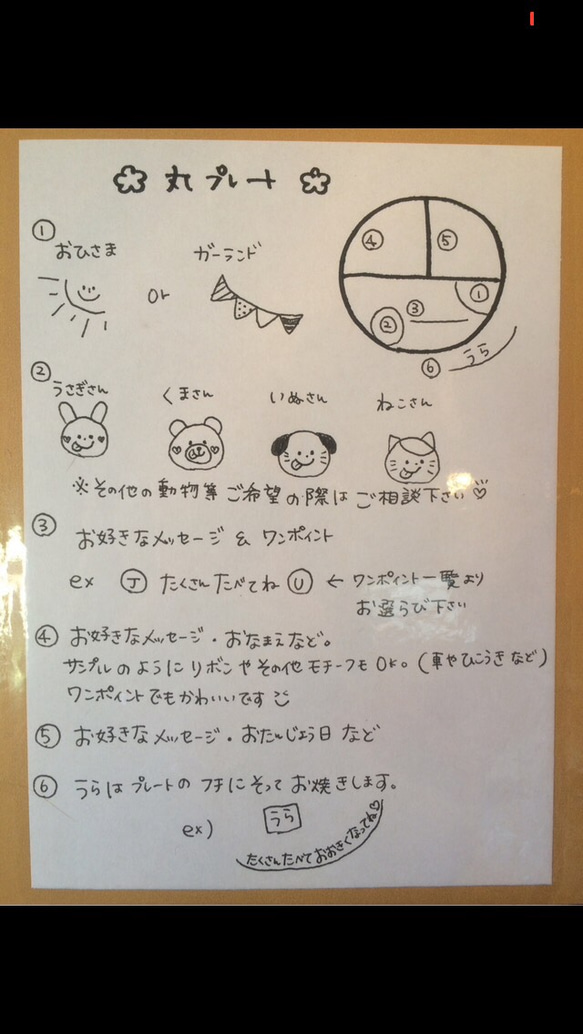 丸プレート
① おひさま or ガーランド
④ ⑤
①
② ③
⑥ うら
② うさぎさん くまさん いぬさん ねこさん
※その他の動物等ご希望の際はご相談下さい♡
③ お好きなメッセージ & ワンポイント
ex Ⓣ たくさんたべてね Ⓤ ← ワンポイント一覧より
お選らび下さい
④ お好きなメッセージ・おなまえなど。
サンプルのようにリボンやその他モチーフもOK。(車やひこうきなど)
ワンポイントでもかわいいです
⑤ お好きなメッセージ・おたんじょう日など
⑥ うらはプレートのフチにそってお焼きします。
ex) うら
たくさんたべておおきくなってね♡